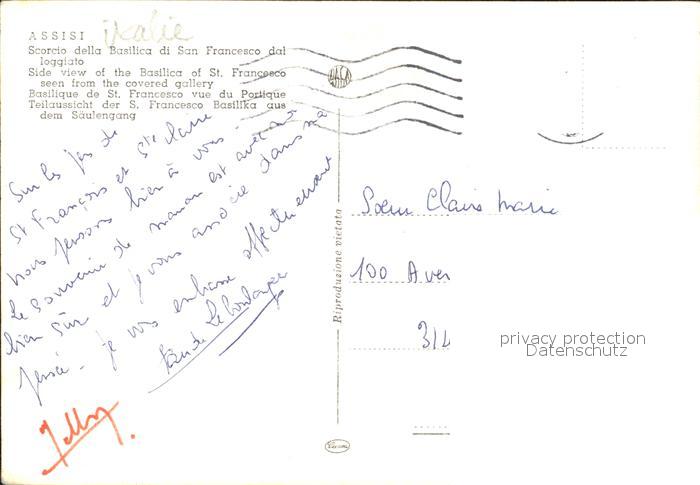 ASSISI italie
Scorcio della Basilica di San Francesco dal
loggiato
Side view of the Basilica of St. Francesco
seen from the covered gallery
Basilique de St. Francesco vue du Portique
Teilaussicht der S. Francesco Basilika aus
dem Säulengang
Sur les pas de
St François et Ste Claire
nous pensons bien à vous -
Le souvenir de maman est avec moi
bien sûr et je vous associe dans ma
pensée - je vous embrasse affectueusement
Riproduzione vietata
Soeur Claire Marie
100 Aver
314
privacy protection
Datenschutz